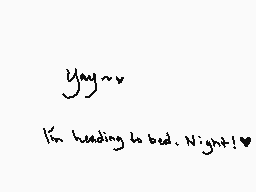 Yay~♥
I'm heading to bed. Night! ♥